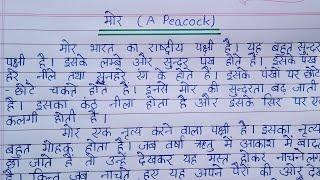 मोर (A Peacock)
मोर भारत का राष्ट्रीय पक्षी है। यह बहुत सुन्दर
पक्षी है। इसके लम्बे और सुन्दर पंख होते हैं। इसके पंख
हरे, नीले तथा सुनहरे रंग के होते है। इसके पंखों पर छोटे
- छोटे चकते होते हैं। इनसे मोर की सुन्दरता बढ़ जाती
है। इसका कंठ नीला होता है और इसके सिर पर एक
कलगी होती है।
मोर एक नृत्य करने वाला पक्षी है। इसका नृत्य
बहुत मोहक होता है। जब वर्षा ऋतु में आकाश में बादल
छा जाते है तो उन्हें देखकर यह मस्त होकर नाचने लगता
है। किन्तु जब नाचते हुए यह अपने पैरों की ओर